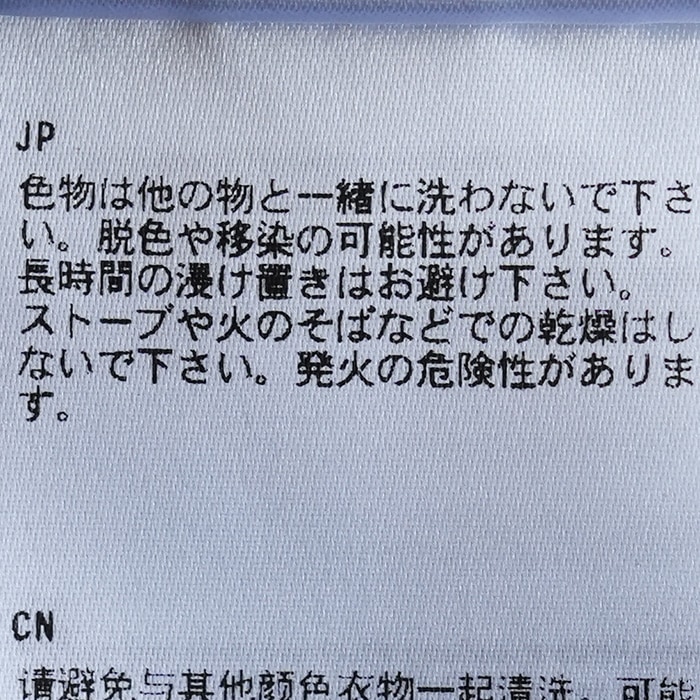 JP
色物は他の物と一緒に洗わないで下さ
い。脱色や移染の可能性があります。
長時間の浸け置きはお避け下さい。
ストーブや火のそばなどでの乾燥はし
ないで下さい。発火の危険性がありま
す。
CN
请避免与其他颜色衣物一起清洗。可能